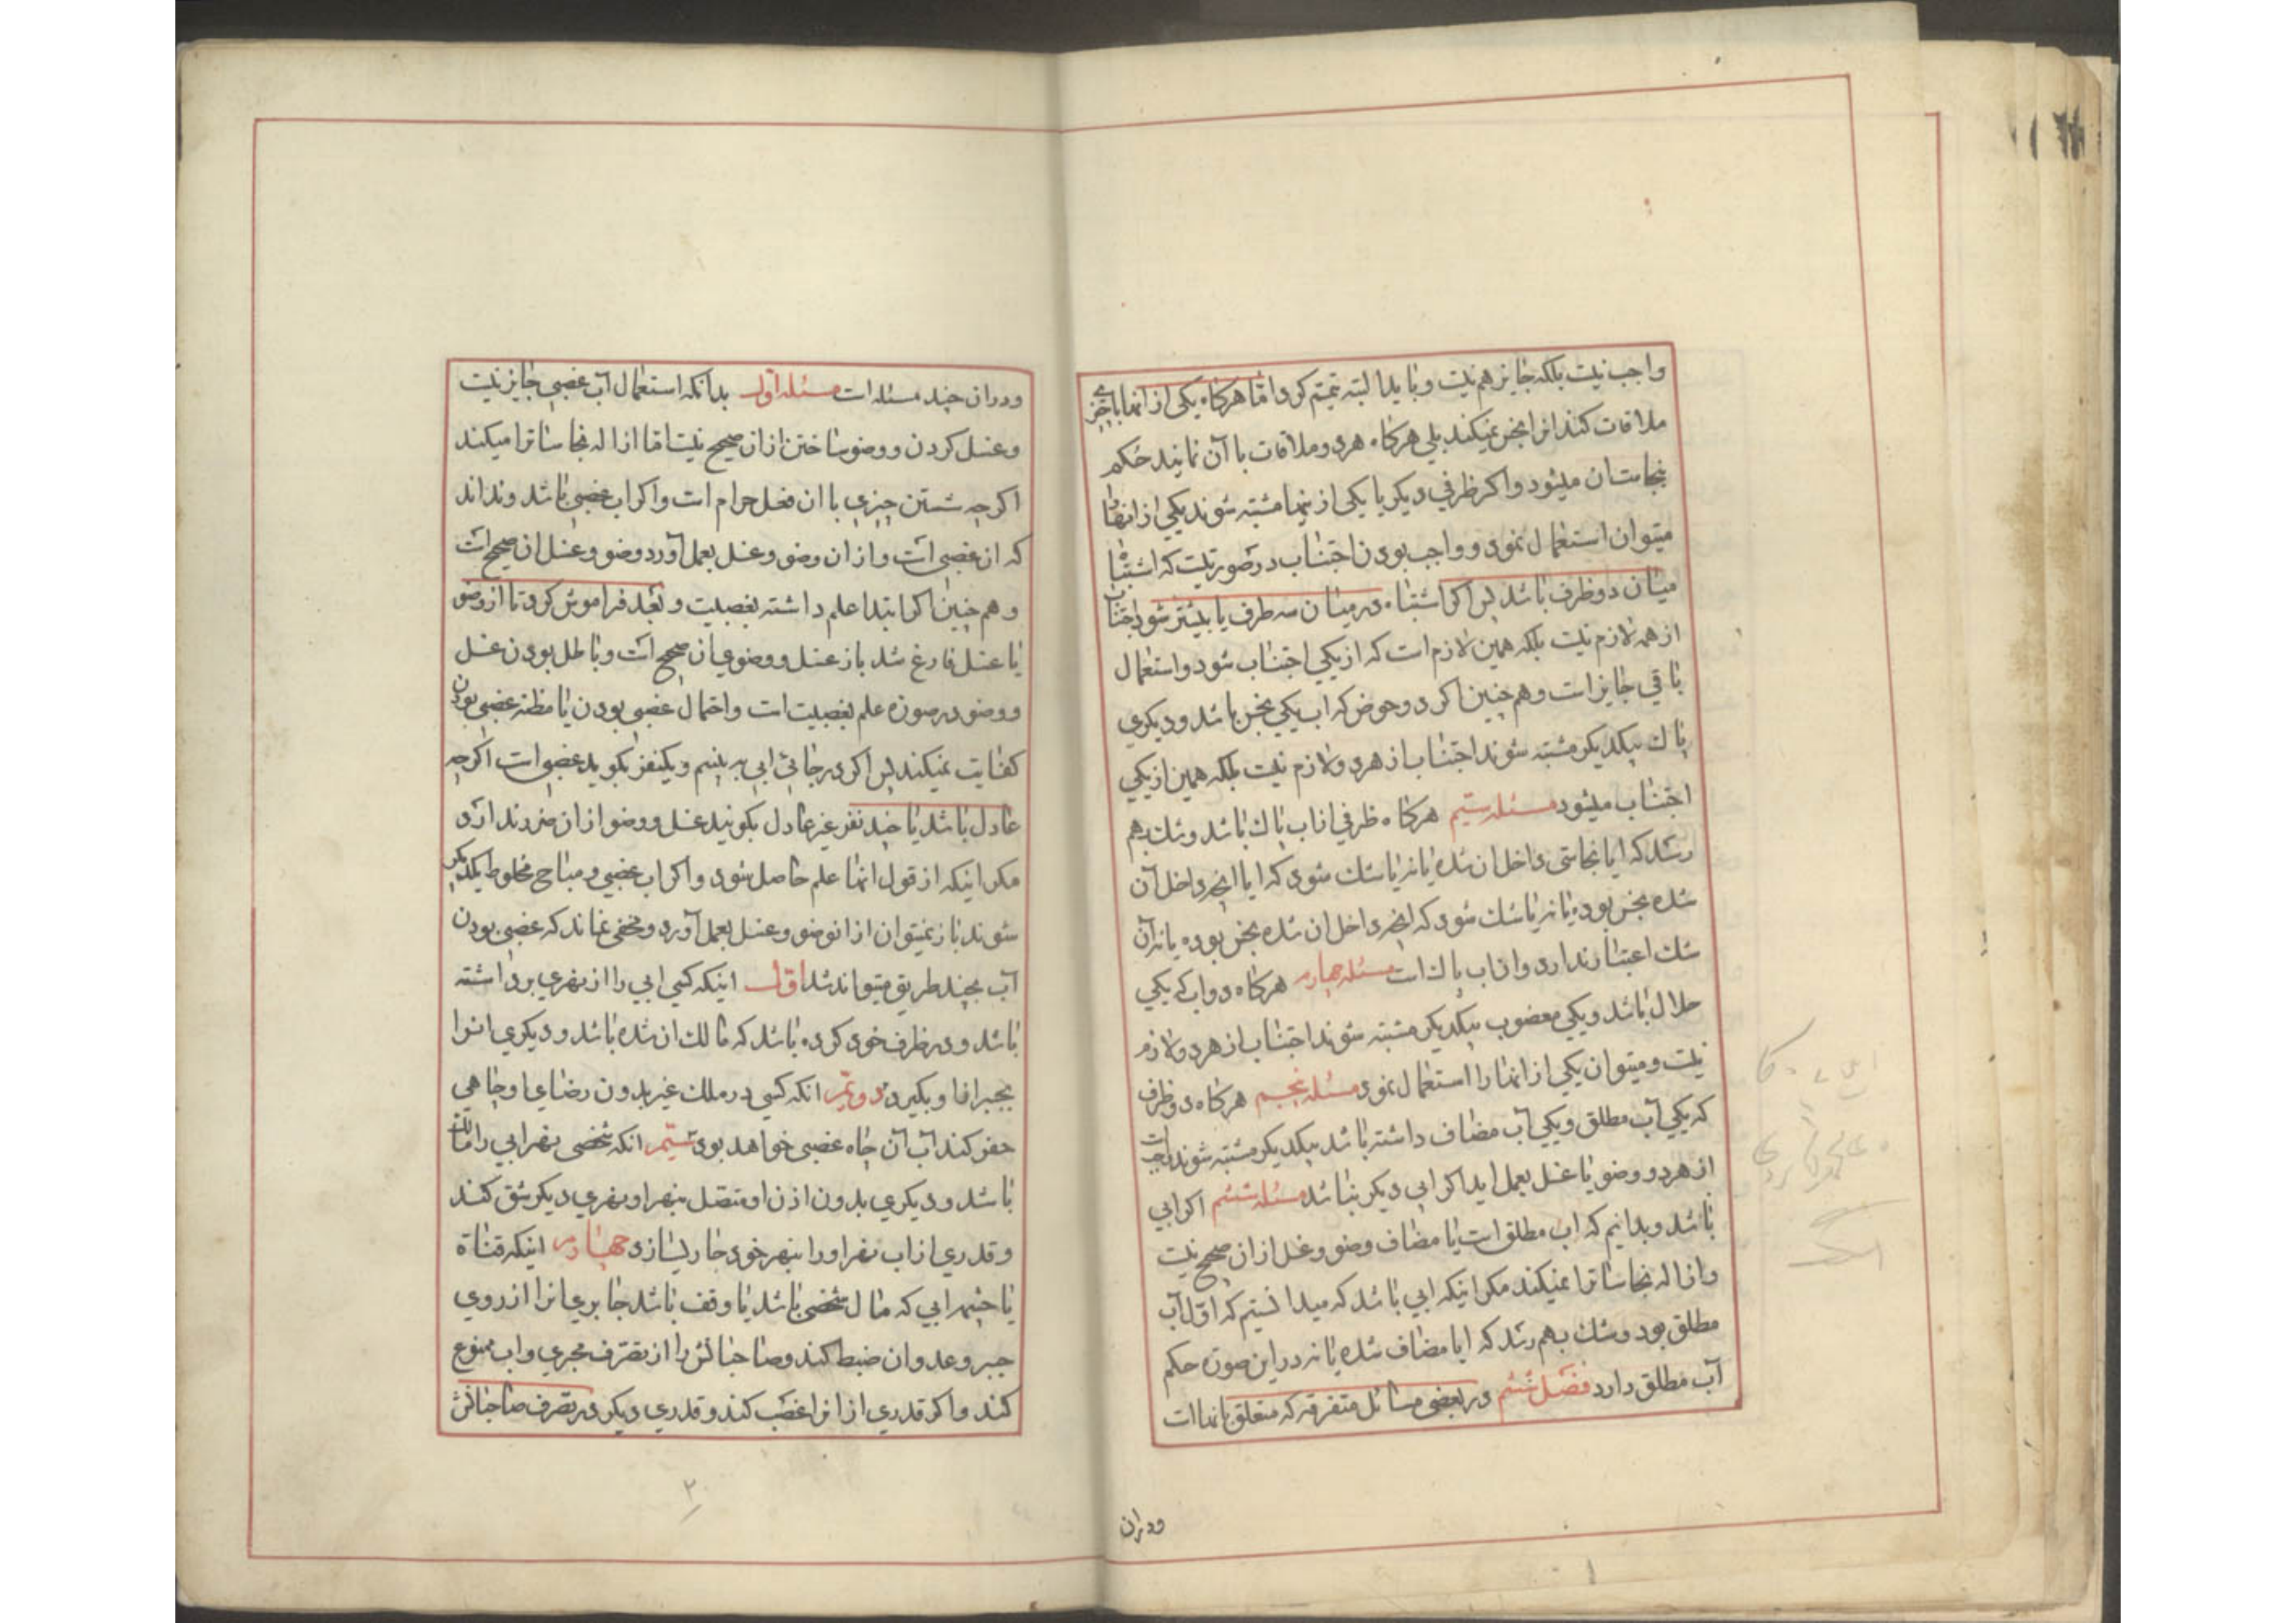 واجب نیست بلکه جایز هم نیست و باید البته تیمم کرد اما هرگاه یکی از آنها با چیزی
ملاقات کند انرا نجس نمیکند بلی هرگاه هردو ملاقات با آن نمایند حکم
بنجاست ان میشود و اکر ظرفی دیکر با یکی از ینها مشتبه شوند یکی از انها را
میتوان استعمال نمود و واجب بودن اجتناب در صورتیست که اشتباه
میان دو ظرف باشد پس اکر اشتباه در میان سه ظرف یا بیشتر شود اجتناب
از همه لازم نیست بلکه همین لازم است که از یکی اجتناب شود و استعمال
باقی جایز است و هم چنین اکر دو حوض که اب یکی نجس باشد و دیکری
پاک بیکدیکر مشتبه شوند اجتناب از هردو لازم نیست بلکه همین از یکی
اجتناب میشود مسئله سیم هرکاه ظرفی از اب پاک باشد و شک بهم
رسد که ایا نجاستی داخل ان شده یا نه یا شک شود که ایا انچه داخل آن
شده نجس بوده یا نه یا شک شود که انچه داخل ان شده نجس بوده یا نه آن
شک اعتبار ندارد و ان اب پاک است مسئله چهارم هرکاه دو اب که یکی
حلال باشد و یکی مغصوب بیکدیکر مشتبه شوند اجتناب از هردو لازم
نیست و میتوان یکی از انها را استعمال نمود مسئله پنجم هرکاه دو ظرف
که یکی آب مطلق و یکی آب مضاف داشته باشد بیکدیکر مشتبه شوند واجب است
از هردو وضو یا غسل بعمل اید اکر ابی دیکر نباشد مسئله ششم اکر ابی
باشد و بدانیم که اب مطلق است یا مضاف وضو و غسل از ان صحیح نیست
و ازاله نجاسات را نمیکند مکر اینکه ابی باشد که میدانستیم که اول آب
مطلق بود و شک بهم رسد که ایا مضاف شده یا نه در این صورة حکم
آب مطلق دارد فصل ششم در بعضی مسائل متفرقه که متعلق بانها است
ودران
ودران چند مسئله است مسئله اول بدانکه استعمال آب غصبی جایز نیست
و غسل کردن و وضو ساختن از ان صحیح نیست اما ازاله نجاسات را میکند
اکرچه شستن چیزی با ان فعل حرام است و اکر اب غصبی باشد و نداند
که ان غصبی است و از ان وضو و غسل بعمل آورد وضو و غسل ان صحیح است
و هم چنین اکر ابتدا علم داشته بغصبیت و بعد فراموش کرد تا از وضو
یا غسل فارغ شد باز غسل و وضوی ان صحیح است و باطل بودن غسل
و وضو در صورة علم بغصبیت است و احتمال غصبی بودن یا مظنه غصبی بودن
کفایت نمیکند پس اکر در جائی ابی به بینیم و یکنفر بکوید غصبی است اکرچه
عادل باشد یا چند نفر غیر عادل بکویند غسل و وضو از ان ضرر ندارد
مکر اینکه از قول انها علم حاصل شود و اکر اب غصبی و مباح مخلوط بیکدیکر
شوند باز نمیتوان از ان وضو و غسل بعمل آورد و مخفی نماند که غصبی بودن
آب بچند طریق میتواند شد اول اینکه کسی ابی را از نهری برداشته
باشد و در ظرف خود کرده باشد که مالک ان شده باشد و دیکری انرا
بجبر از او بکیرد دویم انکه کسی در ملک غیر بدون رضای او چاهی
حفر کند آب آن چاه غصبی خواهد بود سیم انکه شخصی نهر ابی را مالک
باشد و دیکری بدون اذن او متصل بنهر او نهری دیکر شق کند
و قدری از اب نهر او را بنهر خود جاری سازد چهارم اینکه قناة
یا چشمه ابی که مال شخصی باشد یا وقف باشد جابری انرا از روی
جبر و عدوان ضبط کند و صاحبانش را از تصرف مجری و اب ممنوع
کند و اکر قدری از انرا غصب کند و قدری دیکر در تصرف صاحبانش
۲